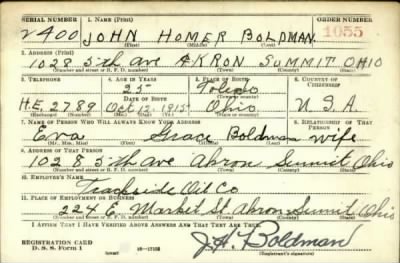 SERIAL NUMBER 1. NAME (Print) ORDER NUMBER
V400 JOHN HOMER BOLDMAN 1055
(First) (Middle) (Last)
2. ADDRESS (Print)
1028 5th AVE AKRON SUMMIT OHIO
(Number and street or R. F. D. number) (Town) (County) (State)
3. TELEPHONE 4. AGE IN YEARS 5. PLACE OF BIRTH 6. COUNTRY OF CITIZENSHIP
25 Toledo
DATE OF BIRTH (Town or county)
HE. 2789 Oct 12, 1915 Ohio U.S.A
(Exchange) (Number) (Mo.) (Day) (Yr.) (State or country)
7. NAME OF PERSON WHO WILL ALWAYS KNOW YOUR ADDRESS 8. RELATIONSHIP OF THAT PERSON
Eva Grace Boldman Wife
(Mr., Mrs., Miss) (First) (Middle) (Last)
9. ADDRESS OF THAT PERSON
1028 5th Ave Akron Summit Ohio
(Number and street or R. F. D. number) (Town) (County) (State)
10. EMPLOYER'S NAME
Trackside Oil Co
11. PLACE OF EMPLOYMENT OR BUSINESS
224 E Market St Akron Summit Ohio
(Number and street or R. F. D. number) (Town) (County) (State)
I AFFIRM THAT I HAVE VERIFIED ABOVE ANSWERS AND THAT THEY ARE TRUE.
REGISTRATION CARD
D. S. S. Form 1 16—17105 J.H. Boldman
(Registrant's signature)